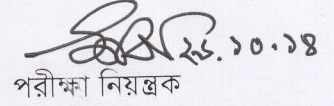 ২৮.১০.১৪
পরীক্ষা নিয়ন্ত্রক